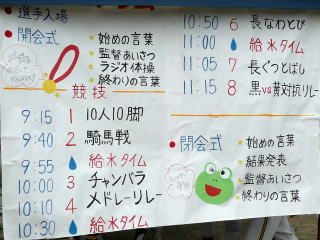 選手入場
開会式
始めの言葉
監督あいさつ
ラジオ体操
終わりの言葉
競技
9:15 1 10人10脚
9:40 2 騎馬戦
9:55 給水タイム
10:00 3 チャンバラ
10:10 4 メドレーリレー
10:30 給水タイム
10:50 6 長なわとび
11:00 給水タイム
11:05 7 長ぐつとばし
11:15 8 黒VS黄対抗リレー
閉会式
始めの言葉
結果発表
監督あいさつ
終わりの言葉